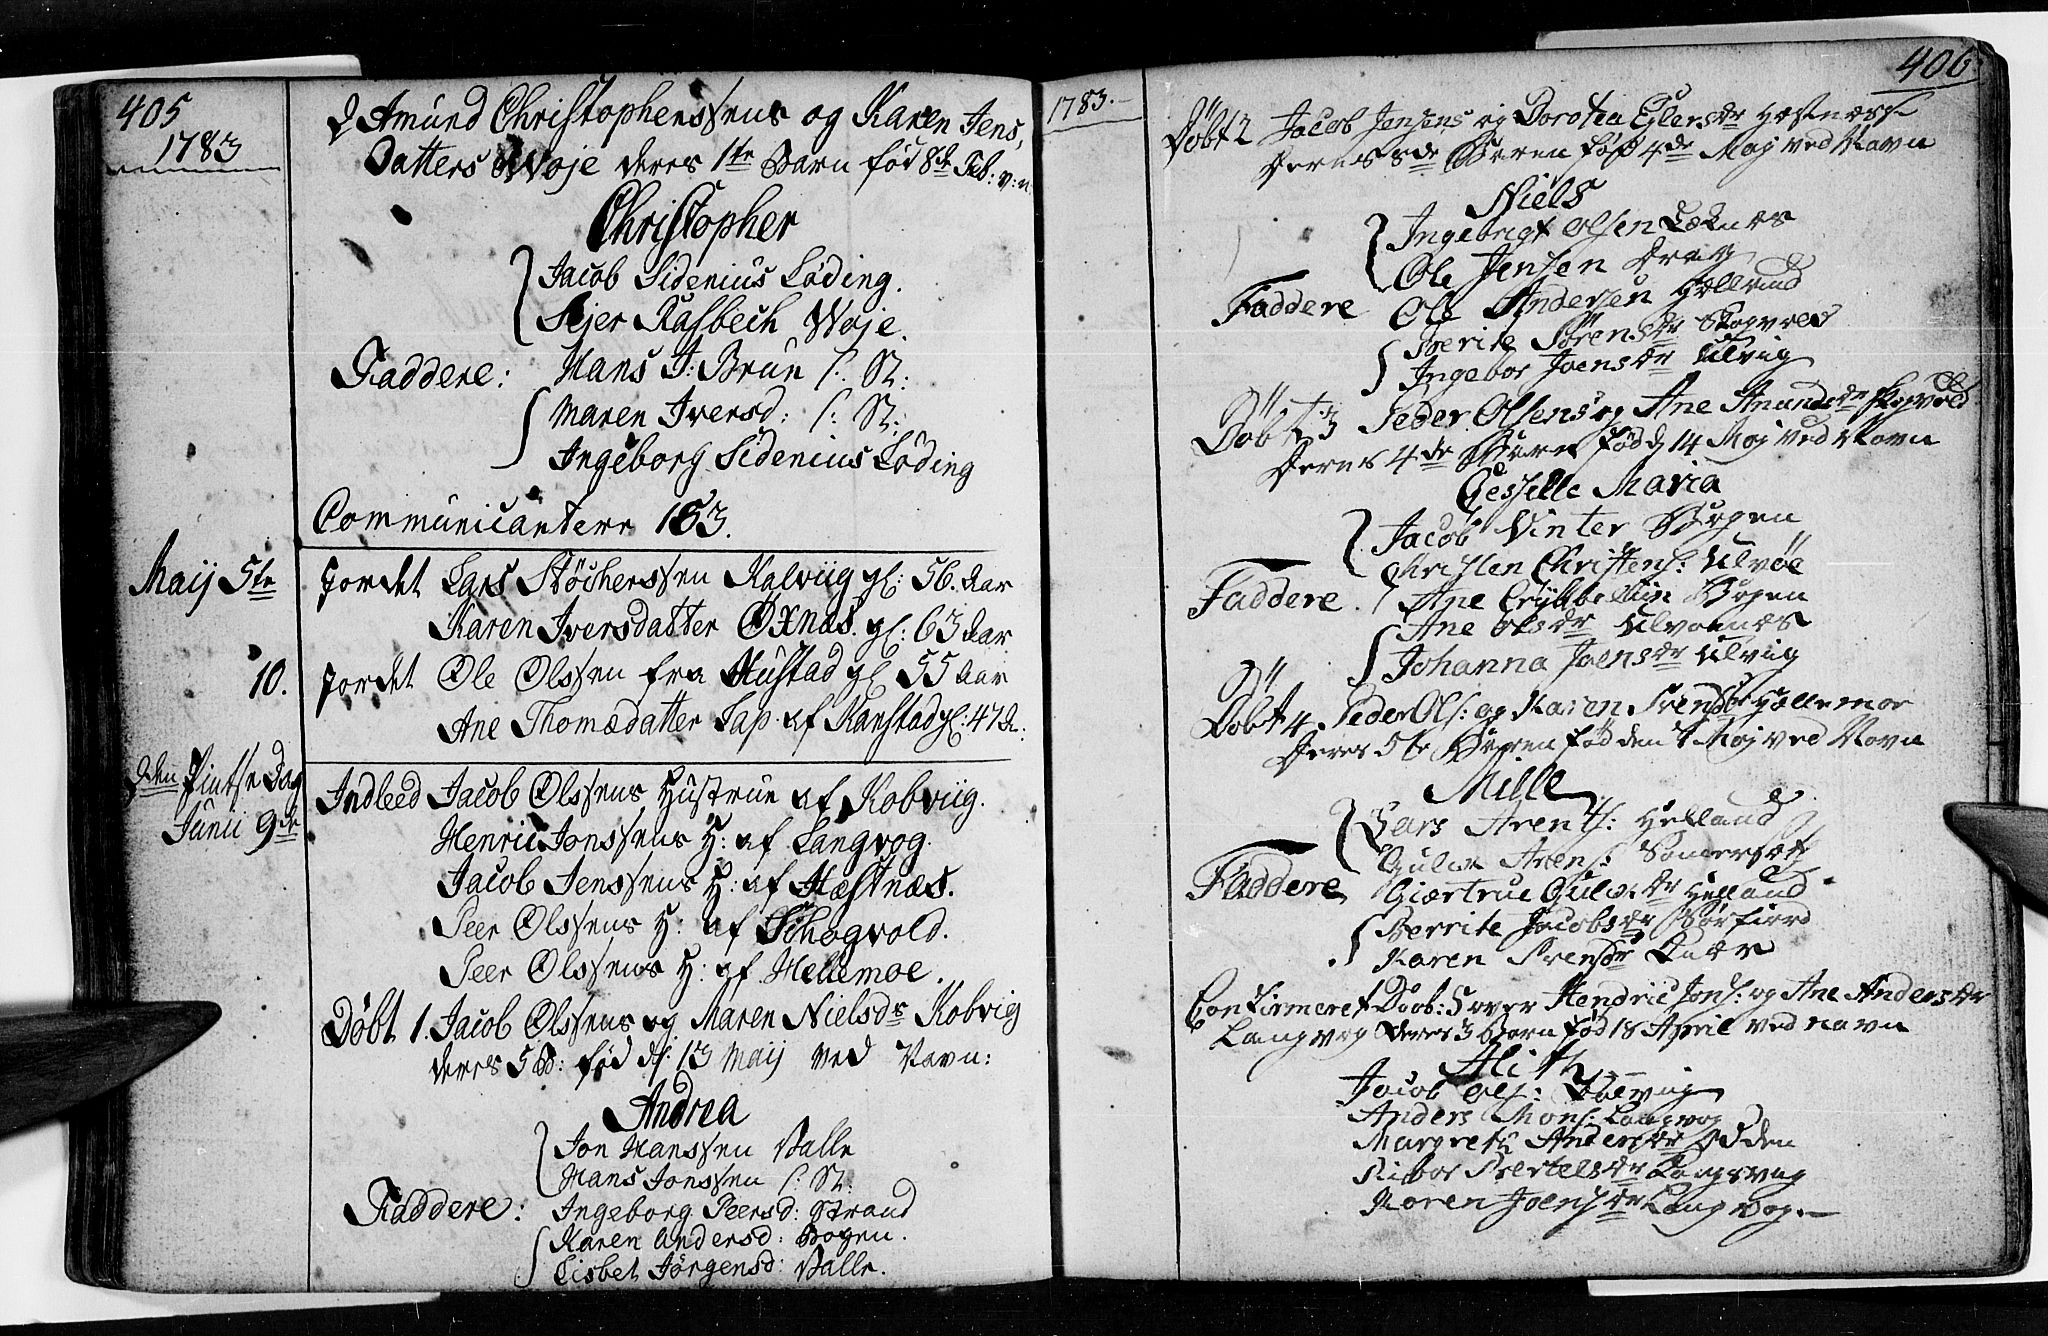 405
1783
2 Amund Christophenssens og Karen Jens,
Datters Woje deres 1te Barn fød 8de Feb: v: n
Christopher
Jacob Sidenius Løding.
Sejer Rasbech Woje.
Faddere: Hans J: Brun /: St:
Maren Iversd: /: St:
Ingeborg Sidenius Løding
Communicantere 163.
Maij 5te Jordet Lars Stöchenssen Kalviig gl: 56. Aar
Karen Iversdatter Øxnæs. gl: 63 Aar
10. Jordet Ole Olssen fra Hustad gl 55 Aar
Ane Thomædatter Lap. af Kanstad gl: 47 A:
2den Pintse Dag
Junii 9de
Indleed Jacob Olssens Hustrue af Kobviig.
Henric Jonssens H: af Langvog.
Jacob Jenssens H: af Hæstnæs.
Peer Olssens H: af Schogvold.
Peer Olssens H: af Hellemoe.
Døbt 1. Jacob Olssens og Maren Nielsdr Kobvig
deres 5 B: fød d: 13 Maij ved Navn:
Andrea
Jon Hanssen Valle
Hans Jonssen /: St:
Faddere: Ingeborg Peersd: Strand
Karen Andersd: Bogen.
Lisbet Jörgensd: Valle.
1783.
406
Døbt 2 Jacob Jensens og Dorotea Eylersdr Hæstnæss
Deres 8de Barn fød 4de Maj ved Navn
Niels
Ingebrigt Olsen Læknes
Ole Jensen Drag
Faddere Ole Andersen Hælland
Berite Sörensdr Skogvold
Ingebor Joensdr Ulvig
Døbt 3 Peder Olsens og Ane Anundsdr Skogvold
Deres 4de Barn fød d 14 Maj ved Navn
Gesselle Maria
Jacob Vinter Bogen
Christen Christens: Ulvøe
Faddere. Ane Bogen
Ane Olsdr Ulvøenæs
Johanna Joensdr Ulvig
Døbt 4. Peder Ols: og Karen Svensdr Hællemoe
Deres 5te Barn fød den Maj ved Navn
Mille
Lars Arents: Helland
Gulak Arens: Somersæt
Faddere Giærtrue Gulaksdr Helland
Berrite Jacobsdr Sörfiord
Karen Svensdr
Confirmeret Daab: 5 over Hendric Jons: og Ane Andersdr
Langvog Deres 3 børn fød 18 April ved navn
Alith
Jacob Ols: Kobvig
Anders Mons: Langvog
Margrete Andersdr Odden
Bertelsdr Langsvag
Karen Joensdr Langvog.